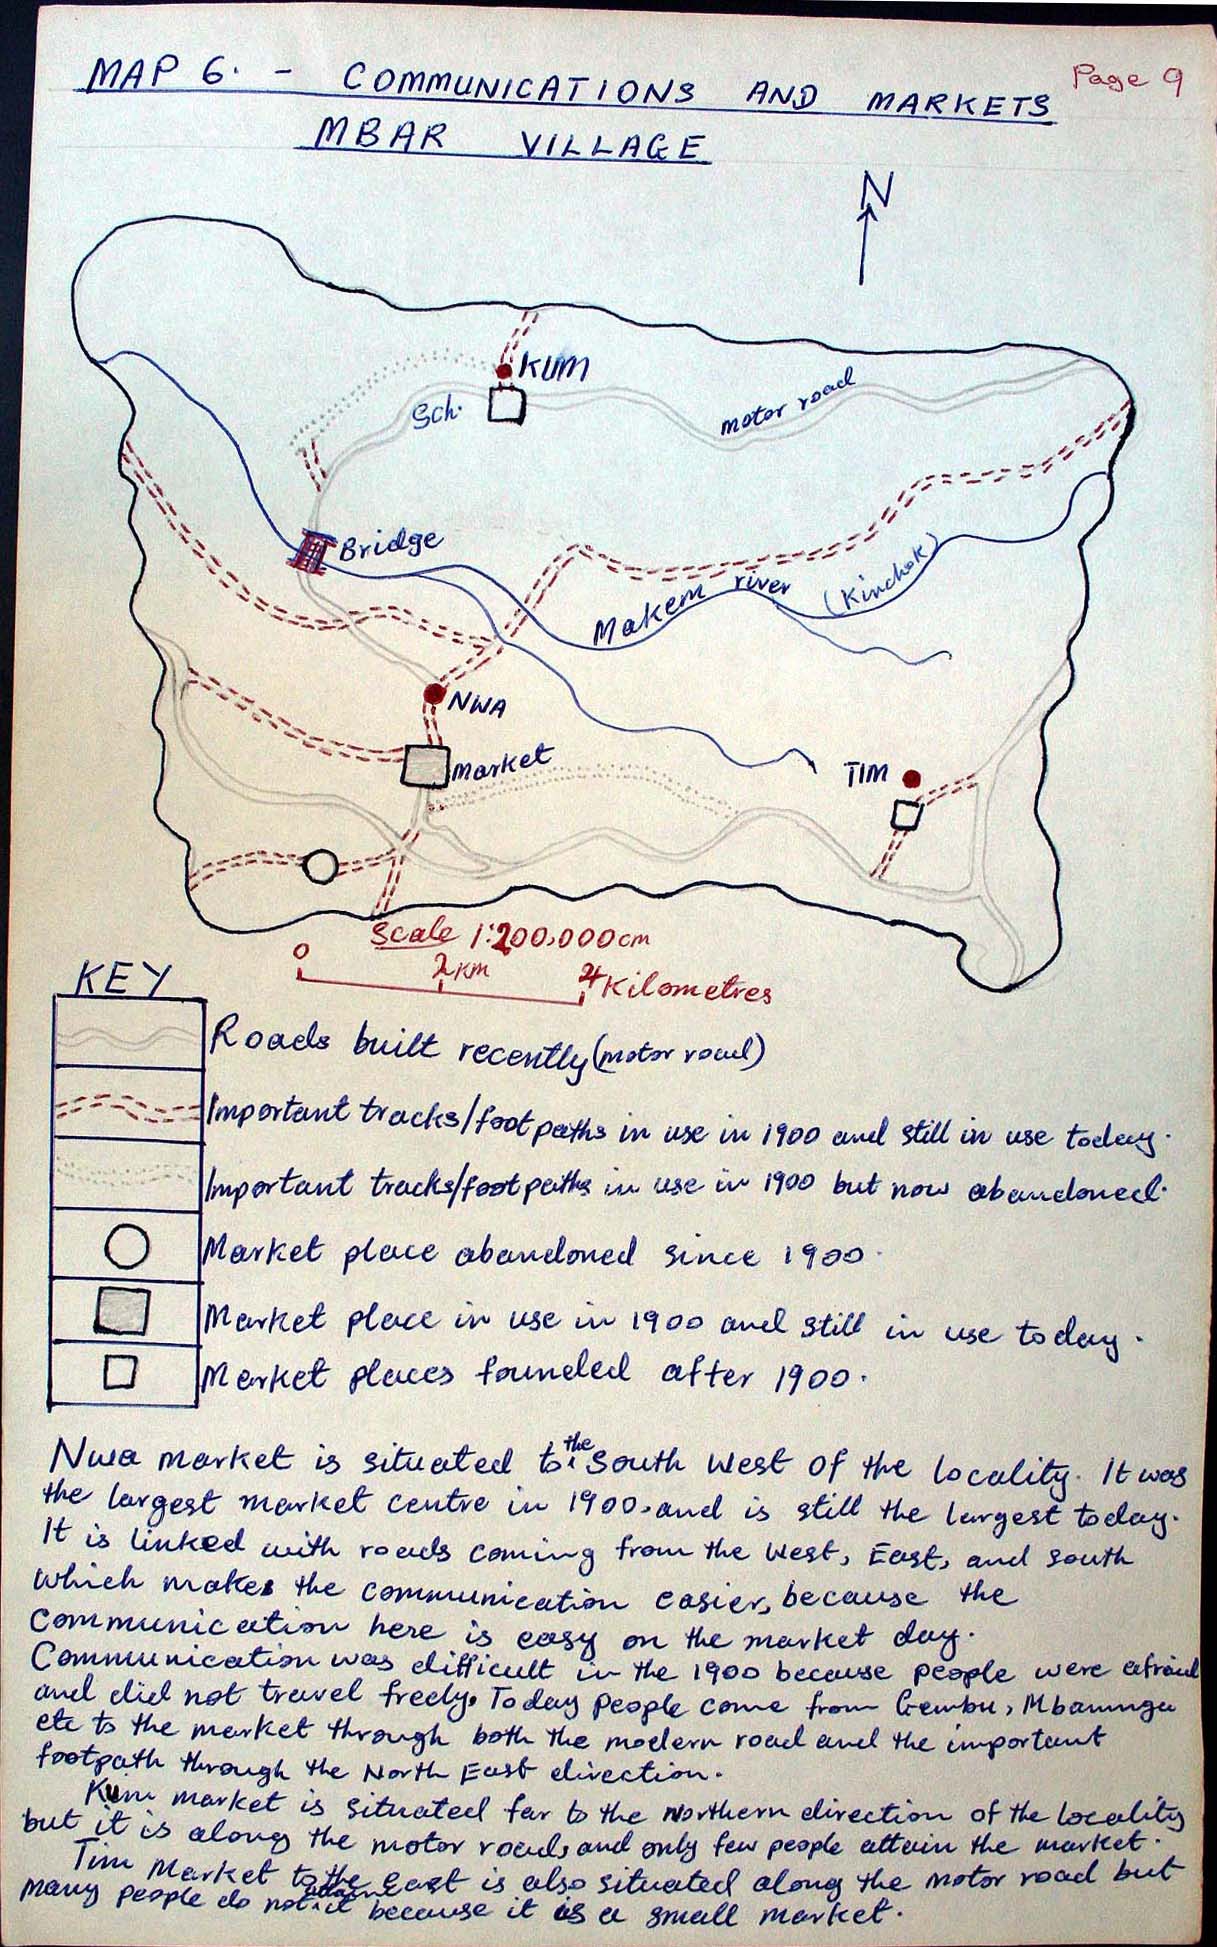 Page 9
MAP 6. - COMMUNICATIONS AND MARKETS
MBAR VILLAGE
N
KUM
Sch.
motor road
Bridge
Makem river (Kinchok)
NWA
Market
TIM
Scale 1:200,000cm
0 2KM 4 Kilometres
KEY
Roads built recently (motor road)
Important tracks/footpaths in use in 1900 and still in use today.
Important tracks/footpaths in use in 1900 but now abandoned.
Market place abandoned since 1900.
Market place in use in 1900 and still in use today.
Market places founded after 1900.
Nwa market is situated to the South West of the locality. It was
the largest market centre in 1900, and is still the largest today.
It is linked with roads coming from the West, East, and south
which makes the communication easier, because the
communication here is easy on the market day.
Communication was difficult in the 1900 because people were afraid
and did not travel freely. Today people come from Gembu, Mbamnga
etc to the market through both the modern road and the important
footpath through the North East direction.
Kum market is situated far to the Northern direction of the locality
but it is along the motor road, and only few people attain the market.
Tim Market to the East is also situated along the motor road but
many people do not attain it because it is a small market.